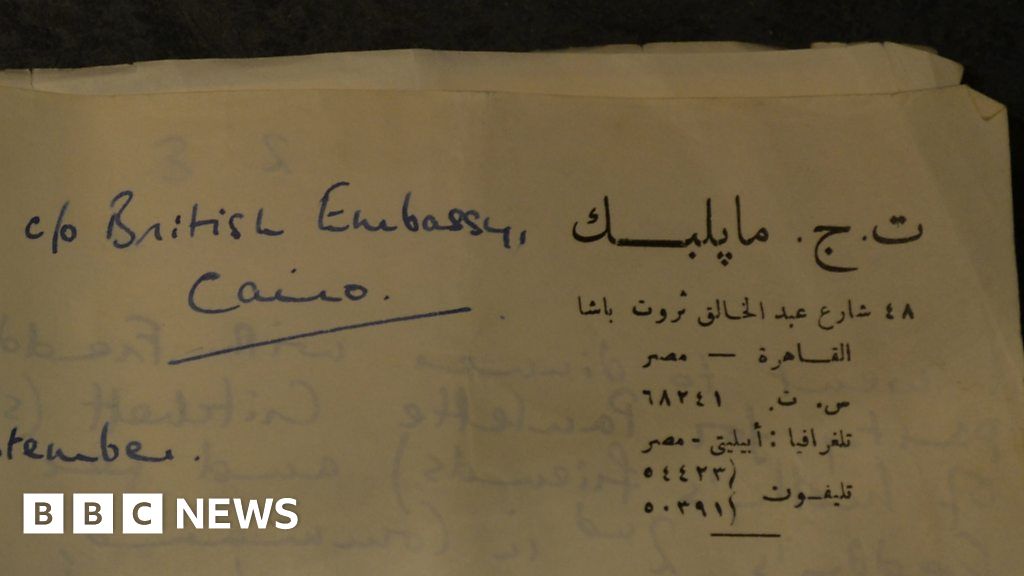 c/o British Embassy,
Cairo.
ت. ج. ماپلبك
٤٨ شارع عبد الخالق ثروت باشا
القاهرة – مصر
س. ت. ٦٨٢٤١
تلغرافيا : أبيليتى - مصر
تليفون ٥٤٤٢٣
٥٠٣٩١
tember.
BBC NEWS